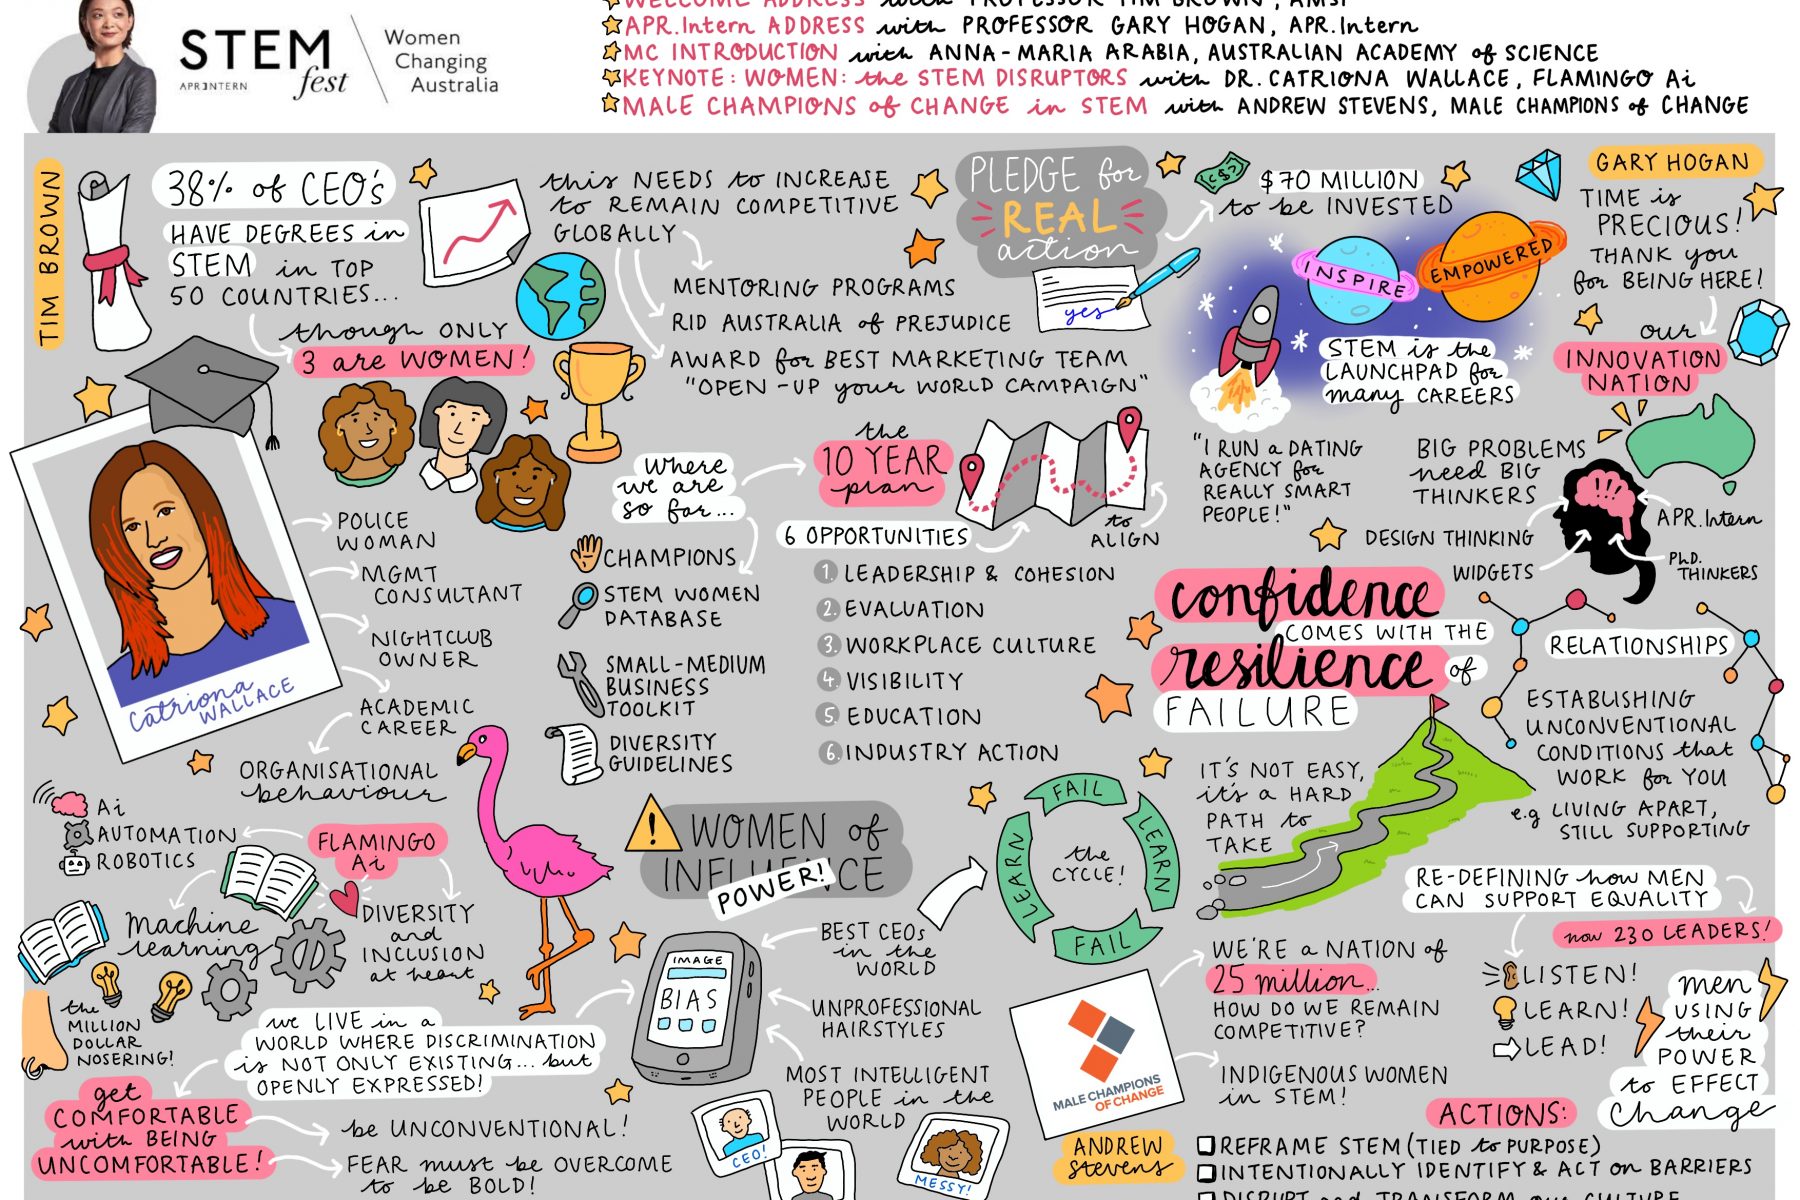 WELCOME ADDRESS with PROFESSOR TIM BROWN, AMSI
APR.Intern ADDRESS with PROFESSOR GARY HOGAN, APR.Intern
MC INTRODUCTION with ANNA-MARIA ARABIA, AUSTRALIAN ACADEMY of SCIENCE
KEYNOTE: WOMEN: the STEM DISRUPTORS with DR. CATRIONA WALLACE, FLAMINGO Ai
MALE CHAMPIONS of CHANGE in STEM with ANDREW STEVENS, MALE CHAMPIONS of CHANGE
STEM
fest
APRINTERN
Women
Changing
Australia
TIM BROWN
38% of CEO's
HAVE DEGREES in
STEM in TOP
50 COUNTRIES...
though ONLY
3 are WOMEN!
this NEEDS to INCREASE
to REMAIN COMPETITIVE
GLOBALLY
MENTORING PROGRAMS
RID AUSTRALIA of PREJUDICE
AWARD for BEST MARKETING TEAM
"OPEN-UP your WORLD CAMPAIGN"
PLEDGE for
REAL
action
yes
$70 MILLION
to be INVESTED
INSPIRE
EMPOWERED
STEM is the
LAUNCHPAD for
many CAREERS
GARY HOGAN
TIME is
PRECIOUS!
THANK you
for BEING HERE!
our
INNOVATION
NATION
"I RUN a DATING
AGENCY for
REALLY SMART
PEOPLE!"
BIG PROBLEMS
need BIG
THINKERS
DESIGN THINKING
WIDGETS
APR.Intern
Ph.D.
THINKERS
Catriona
WALLACE
POLICE
WOMAN
MGMT
CONSULTANT
NIGHTCLUB
OWNER
ACADEMIC
CAREER
ORGANISATIONAL
behaviour
where
we are
so far...
the
10 YEAR
plan
to
ALIGN
CHAMPIONS
STEM WOMEN
DATABASE
SMALL-MEDIUM
BUSINESS
TOOLKIT
DIVERSITY
GUIDELINES
6 OPPORTUNITIES
1. LEADERSHIP & COHESION
2. EVALUATION
3. WORKPLACE CULTURE
4. VISIBILITY
5. EDUCATION
6. INDUSTRY ACTION
confidence
COMES WITH THE
resilience of
FAILURE
RELATIONSHIPS
ESTABLISHING
UNCONVENTIONAL
CONDITIONS that
WORK for YOU
e.g LIVING APART,
STILL SUPPORTING
IT'S NOT EASY,
it's a HARD
PATH to
TAKE
Ai
AUTOMATION
ROBOTICS
FLAMINGO
Ai
Machine
learning
DIVERSITY
and
INCLUSION
at heart
the
MILLION
DOLLAR
NOSERING!
we LIVE in a
WORLD WHERE DISCRIMINATION
is NOT ONLY EXISTING... but
OPENLY EXPRESSED!
get
COMFORTABLE
with BEING
UNCOMFORTABLE!
be UNCONVENTIONAL!
FEAR must be OVERCOME
to be BOLD!
WOMEN of
INFLUENCE
POWER!
IMAGE
BIAS
BEST CEOs
in the
WORLD
UNPROFESSIONAL
HAIRSTYLES
MOST INTELLIGENT
PEOPLE in the
WORLD
CEO!
MESSY!
FAIL
LEARN
FAIL
LEARN
the
CYCLE!
MALE CHAMPIONS
OF CHANGE
ANDREW
Stevens
WE'RE a NATION of
25 million...
HOW DO WE REMAIN
COMPETITIVE?
INDIGENOUS WOMEN
in STEM!
RE-DEFINING how MEN
CAN SUPPORT EQUALITY
now 230 LEADERS!
LISTEN!
LEARN!
LEAD!
men
USING
their
POWER
to EFFECT
change
ACTIONS:
REFRAME STEM (TIED to PURPOSE)
INTENTIONALLY IDENTIFY & ACT on BARRIERS
DISRUPT and TRANSFORM our CULTURE